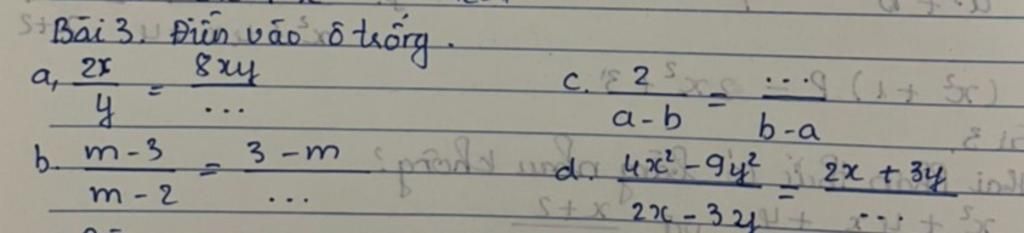 Bài 3. Điền vào ô trống.
a, 2x/y = 8xy/... c. 2/(a-b) = .../(b-a)
b. (m-3)/(m-2) = (3-m)/... d. (4x²-9y²)/(2x-3y) = (2x+3y)/...